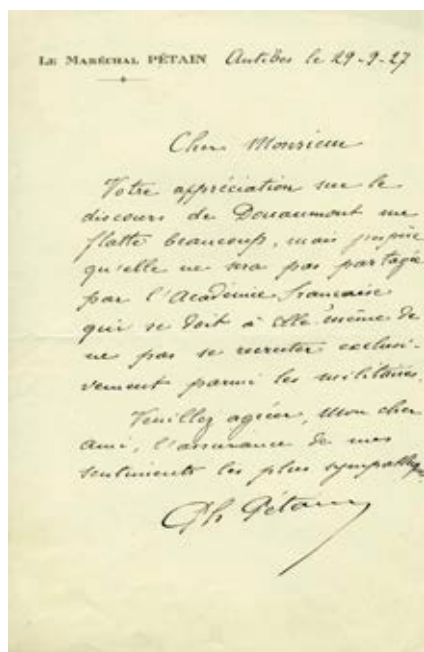 LE MARÉCHAL PÉTAIN Antibes le 29-9-27
Cher Monsieur
Votre appréciation sur le
discours de Douaumont me
flatte beaucoup, mais j'espère
qu'elle ne sera pas partagée
par l'Académie française
qui se doit à elle-même de
ne pas se recruter exclusi-
vement parmi les militaires.
Veuillez agréer, mon cher
ami, l'assurance de mes
sentiments les plus sympathiques
Ph Pétain